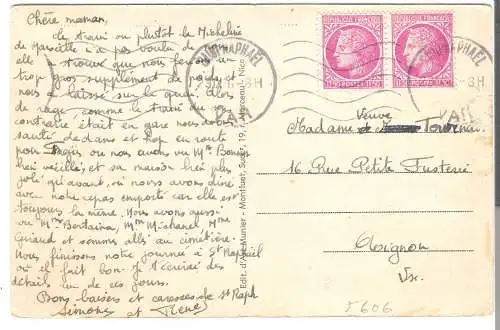 Chère maman,
Le train ou plutôt la Micheline
de Marseille n'a pas voulu de nous
elle a trouvé que nous ferions un
trop gros supplément de poids et
nous a laissé sur le quai. Ivres
de rage, comme le train du sens
contraire était en gare nous avons
sauté dedans et hop en route
pour où nous avons vu Mme
bien vieillie, et sa maison bien plus
jolie qu'avant, où nous avons dîné
avec notre repas emporté car elle est
toujours la même. Nous avons aussi
vu Mme Bontaina, Mme Michanel, Mme
Giraud et sommes allés au cimetière.
Nous finissons notre journée à St Raphaël
où il fait bon. Je t'écrirai des
détails un de ces jours.
Bons baisers et caresses de St Raph
Simone et René
Edit. d'Art Munier - Montfuet, Succr, 19, Nice
ST RAPHAEL
VAR
RAPHAEL
VAR
REPUBLIQUE FRANÇAISE
1F50 POSTES 1F50
REPUBLIQUE FRANÇAISE
1F50 POSTES 1F50
Veuve
Madame
16 Rue Petite Fusterie
Avignon
Vse.
5606